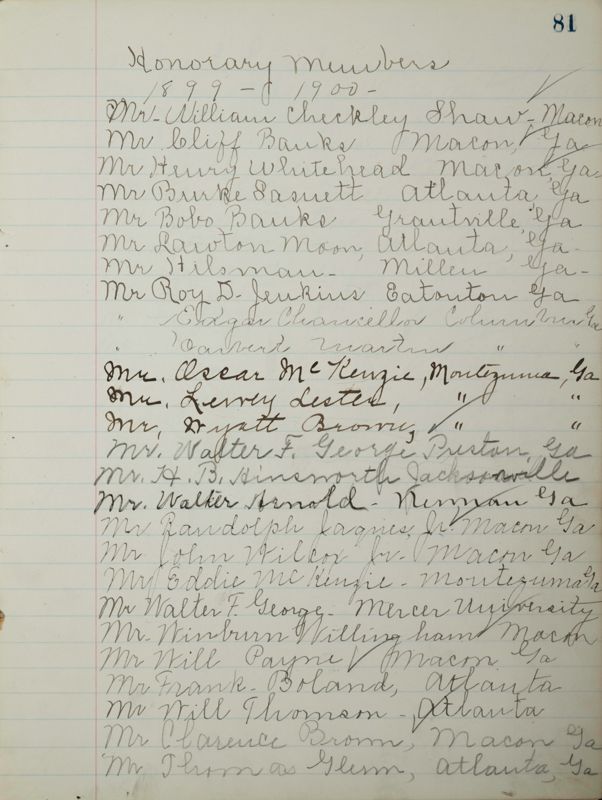 81
Honorary Members
1899 - 1900 -
Mr. William Checkley Shaw - Macon
Mr Cliff Banks Macon, Ga
Mr Henry Whitehead Macon, Ga.
Mr Burke Sasnett Atlanta, Ga
Mr Bobo Banks Grantville, Ga
Mr Lawton Moon, Atlanta, Ga.
Mr Hilsman - Millen Ga -
Mr Roy D. Jenkins Eatonton Ga
" Edgar Chancellor Columbus Ga
" Martin " "
Mr. Oscar McKenzie, Montezuma, Ga
Mr. Lewey Lester, " "
Mr, Wyatt Brown, " "
Mr. Walter F. George Preston, Ga
Mr. H. B. Ainsworth Jacksonville
Mr. Walter Arnold - Ga
Mr Randolph Jaques, Jr. Macon Ga
Mr John Wilcox Jr. Macon Ga
Mr Eddie McKenzie - Montezuma Ga
Mr Walter F. George - Mercer University
Mr. Winburn Willingham Macon
Mr Will Payne Macon Ga
Mr Frank - Boland, Atlanta
Mr Will Thomson - Atlanta
Mr Clarence Brown, Macon Ga
Mr, Thomas Glenn, Atlanta, Ga